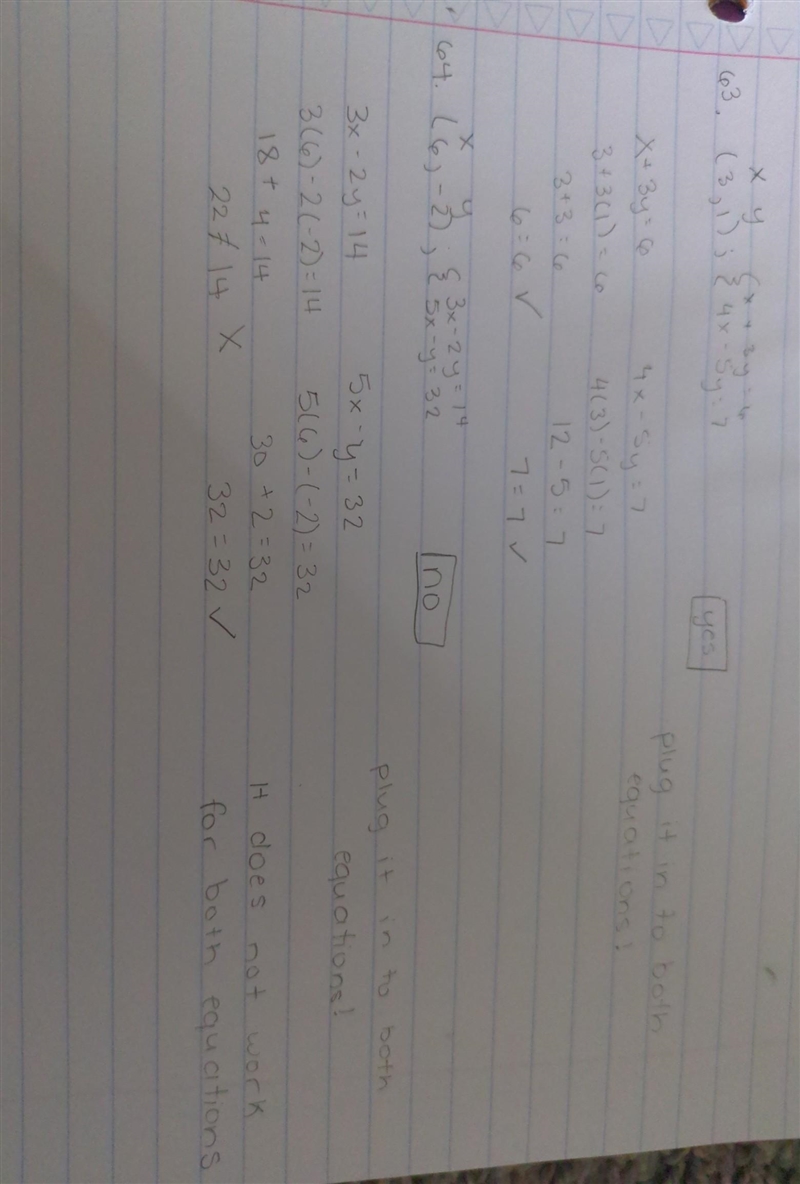 x y
63. (3, 1); { x + 3y = 6
4x - 5y = 7
yes
x + 3y = 6 4x - 5y = 7 plug it in to both
3 + 3(1) = 6 4(3) - 5(1) = 7 equations!
3 + 3 = 6 12 - 5 = 7
6 = 6 ✓ 7 = 7 ✓
x y
64. (6, -2); { 3x - 2y = 14
5x - y = 32
no
3x - 2y = 14 5x - y = 32 plug it in to both
3(6) - 2(-2) = 14 5(6) - (-2) = 32 equations!
18 + 4 = 14 30 + 2 = 32 It does not work
22 ≠ 14 X 32 = 32 ✓ for both equations